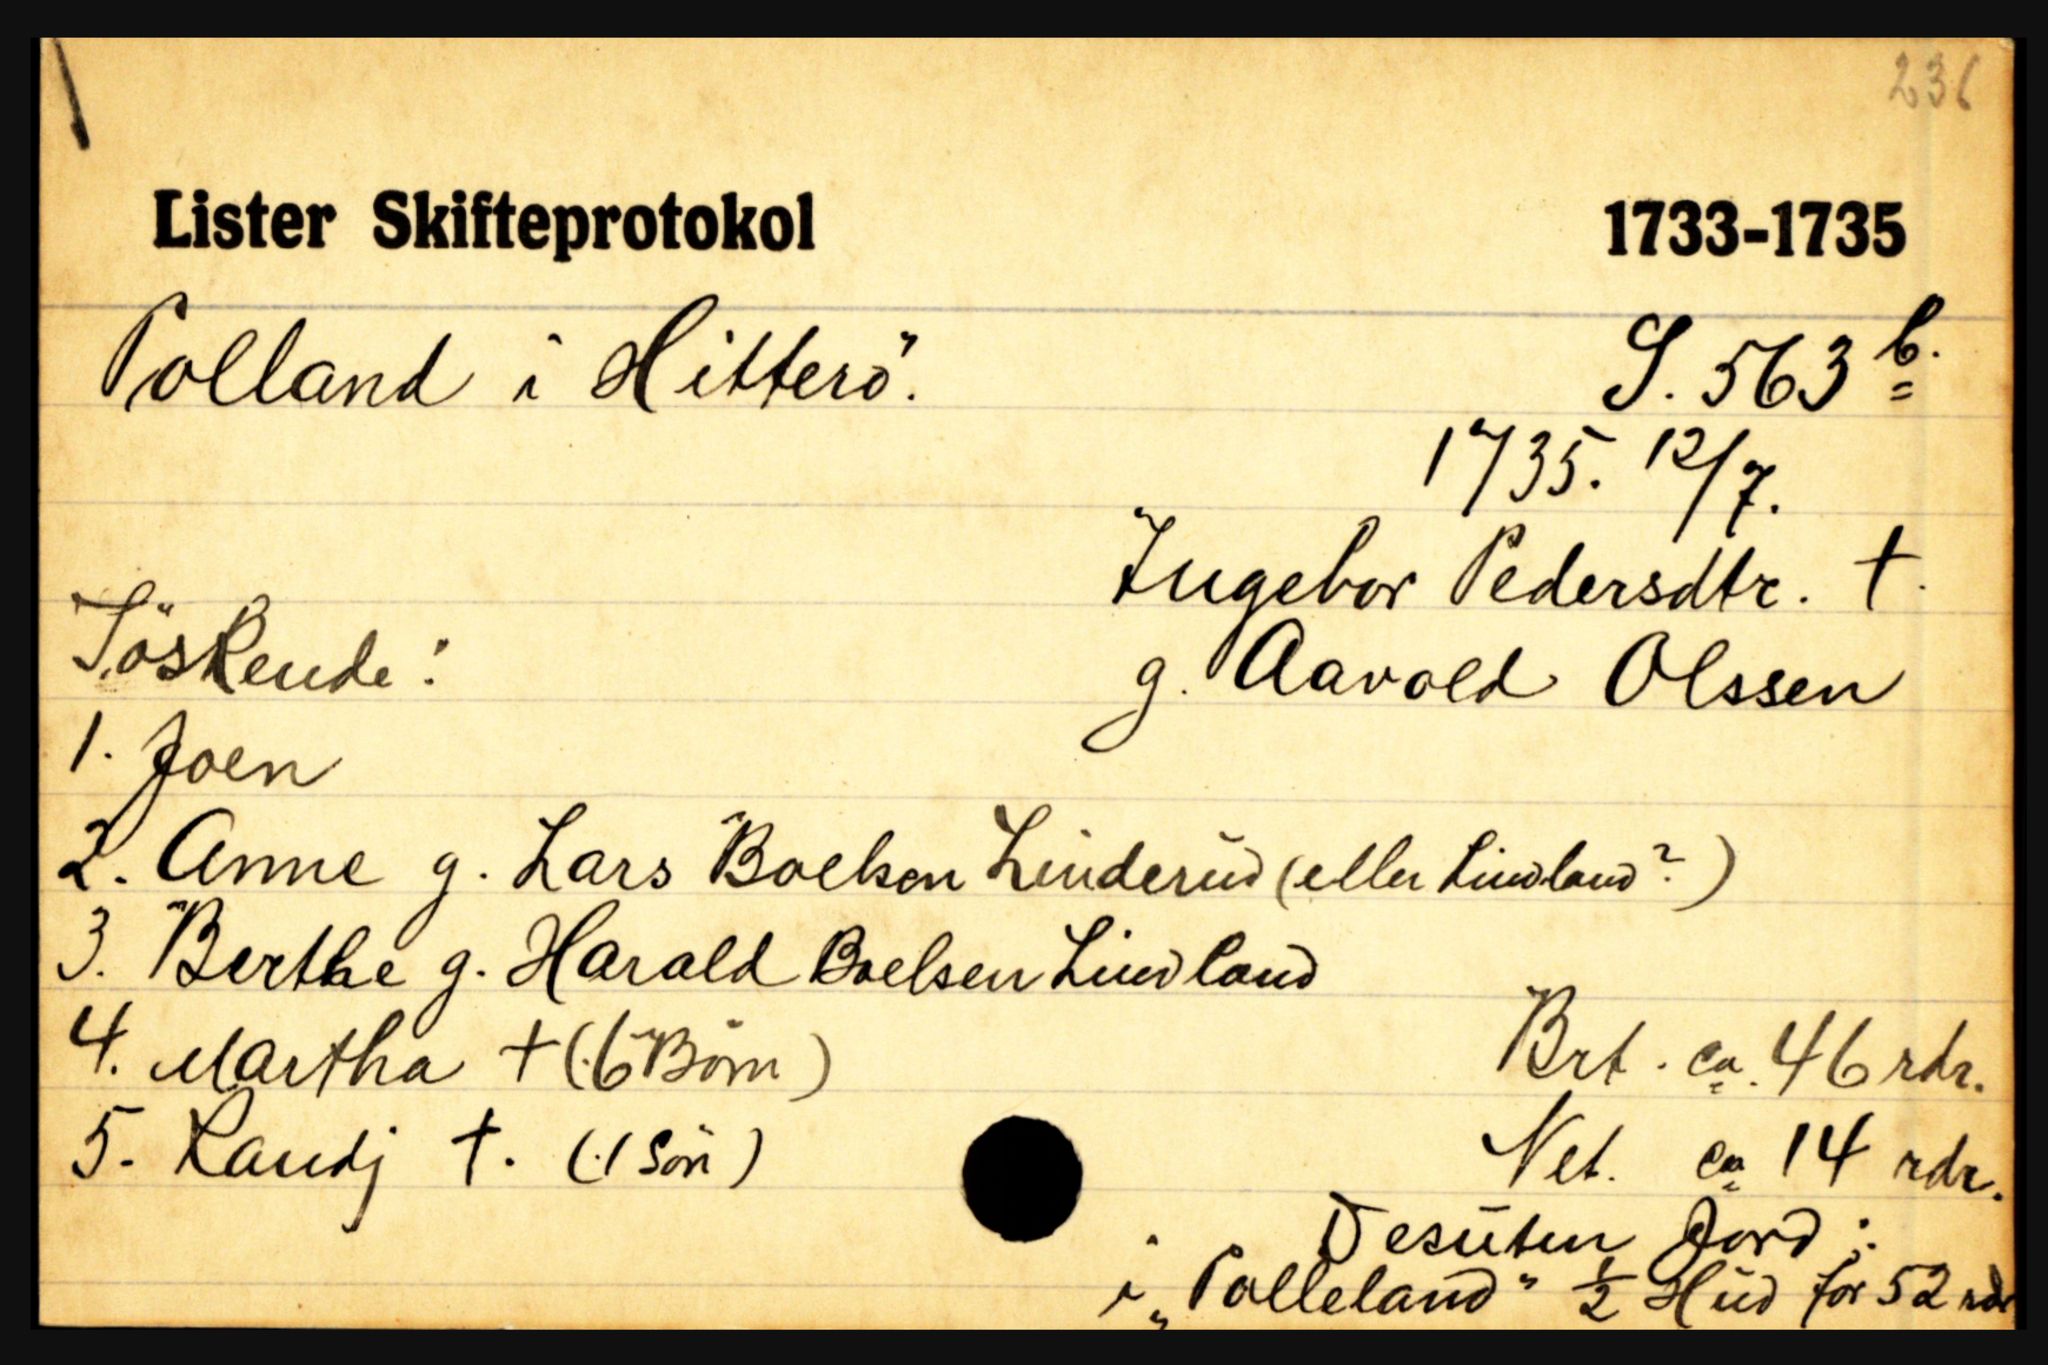 236
Lister Skifteprotokol 1733-1735
Polland i Hitterö. S. 563 b.
1735. 12/7.
Ingebor Pedersdtr. †.
g. Aavold Olssen
Söskende:
1. Joen
2. Anne g. Lars Boelsen Linderud (eller Lindland?)
3. Berthe g. Harald Boelsen Lindland
4. Martha † (: 6 Börn)
5. Randj †. (: 1 Sön)
Brt. ca. 46 rdr.
Net. ca 14 rdr.
Desuten Jord:
i „Polleland" ½ Hud for 52 rdr